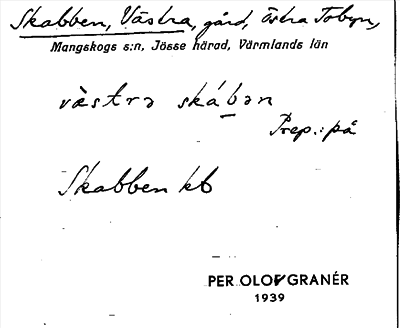 Skabben, Västra, gård, Östra Tobyn,
Mangskogs s:n, Jösse härad, Värmlands län
västra skábən
Prep.: på
Skabben kb
PER OLOF GRANÉR
1939